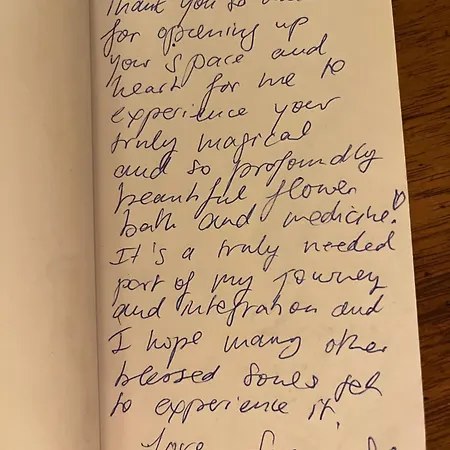 Thank you so
for opening up
your space and
heart for me to
experience your
truly magical
and so profoundly
beautiful flower
bath and medicine!
It's a truly needed
part of my journey
and integration and
I hope many other
blessed souls get
to experience it.
Love